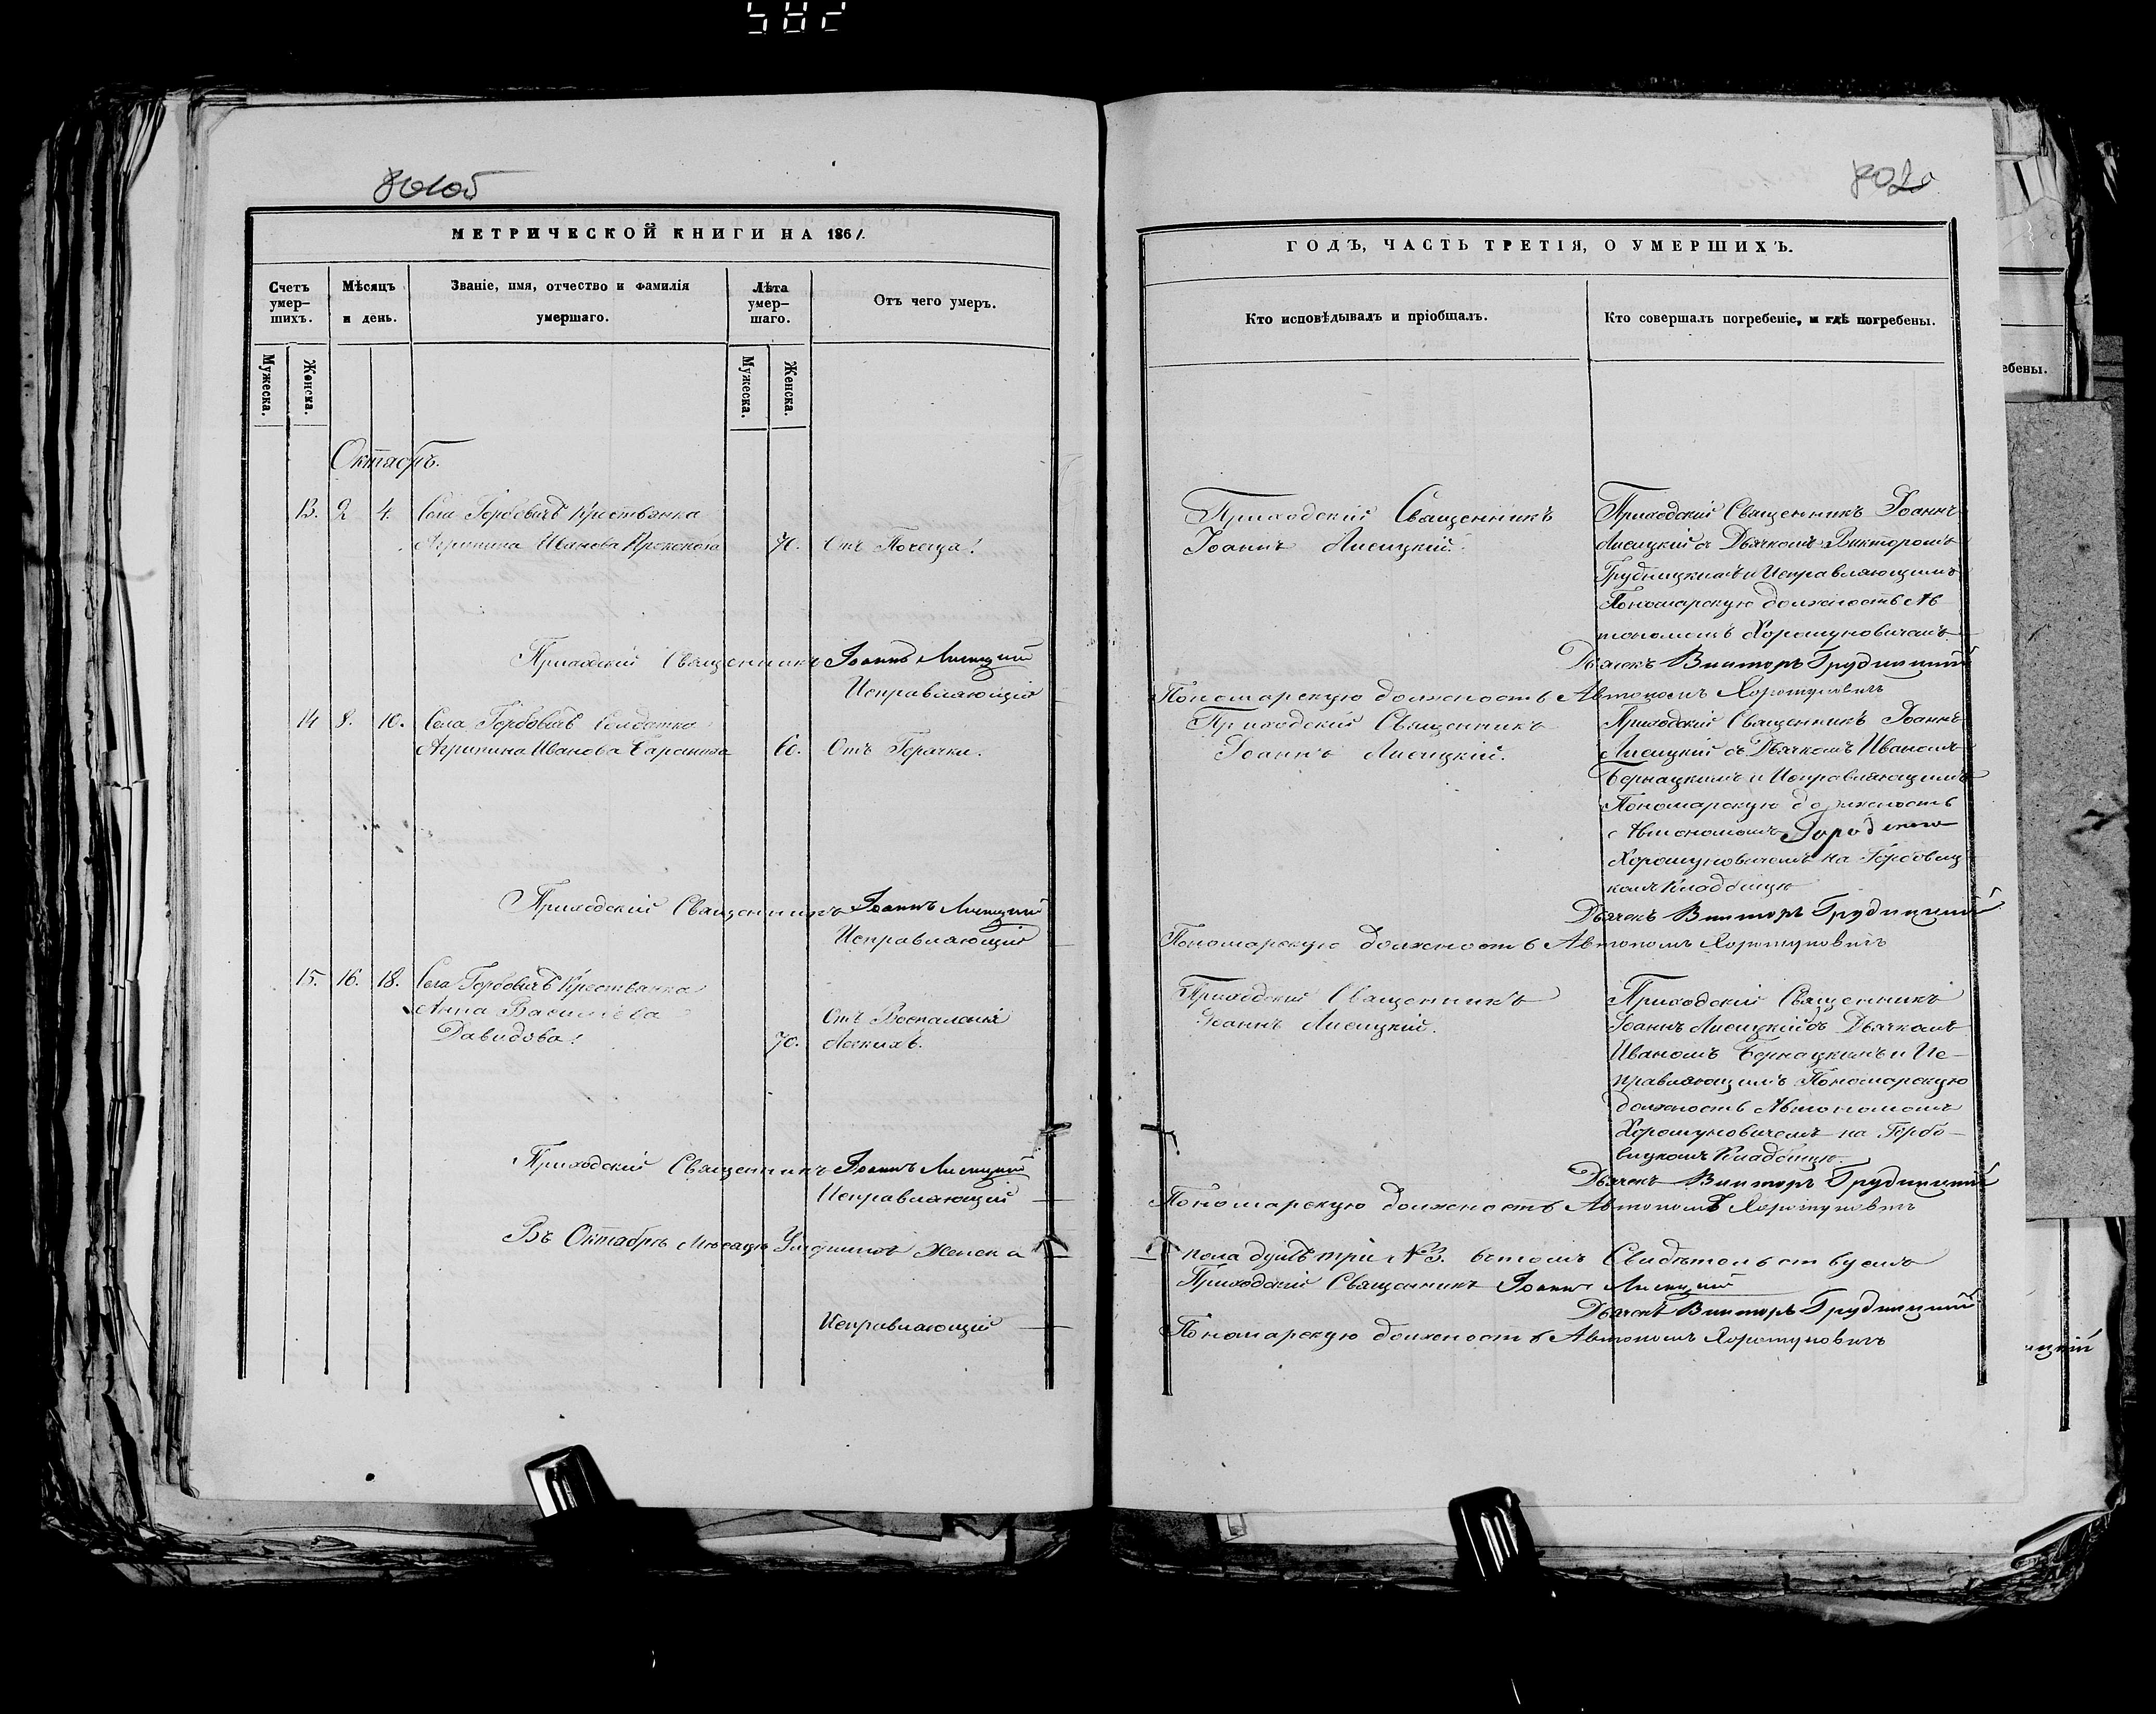 582
801об
802
МЕТРИЧЕСКОЙ КНИГИ НА 1861.
Счетъ умер-шихъ.
Мѣсяцъ и день.
Званіе, имя, отчество и фамилія умершаго.
Лѣта умер-шаго.
Отъ чего умеръ.
Мужеска.
Женска.
Мужеска.
Женска.
Октябрь.
13. 2 4. Села Горбовичъ Крестьянка
Агрипина Иванова 70. Отъ
Приходскій Священникъ Іоаннъ Лисицкій
Исправляющій
14 8. 10. Села Горбовичъ Солдатка
Агрипина Иванова 60. Отъ Горячки.
Приходскій Священникъ Іоаннъ Лисицкій
Исправляющій
15. 16. 18. Села Горбовичъ Крестьянка
Анна Василіева Отъ Воспаленія
Давидова. 70. Легкихъ.
Приходскій Священникъ Іоаннъ Лисицкій
Исправляющій
Въ Октябрѣ Мѣсяцѣ Умершихъ Женска
Исправляющій
ГОДЪ, ЧАСТЬ ТРЕТІЯ, О УМЕРШИХЪ.
Кто исповѣдывалъ и пріобщалъ.
Кто совершалъ погребеніе, и гдѣ погребены.
Приходскій Священникъ
Іоаннъ Лисицкій.
Приходскій Священникъ Іоаннъ
Лисицкій съ Дьячкомъ Викторомъ
Грудницкимъ и Исправляющимъ
Пономарскую должность Ав
тономомъ Хорошуновичемъ
Дьячекъ Викторъ Грудницкій
Пономарскую должность Автономъ Хорошуновичъ
Приходскій Священникъ
Іоаннъ Лисицкій.
Приходскій Священникъ Іоаннъ
Лисицкій съ Дьячкомъ Иваномъ
Бернацкимъ и Исправляющимъ
Пономарскую должность
Автономомъ
Хорошуновичемъ на Горбовиц
комъ Кладбищѣ
Дьячекъ Викторъ Грудницкій
Пономарскую должность Автономъ Хорошуновичъ
Приходскій Священникъ
Іоаннъ Лисицкій.
Приходскій Священникъ
Іоаннъ Лисицкій съ Дьячкомъ
Иваномъ Бернацкимъ и Ис-
правляющимъ Пономарскую
должность Автономомъ
Хорошуновичемъ на Горбо-
вицкомъ Кладбищѣ.
Дьячекъ Викторъ Грудницкій
Пономарскую должность Автономъ Хорошуновичъ
пола душъ три №3. в томъ Свидѣтельствуемъ
Приходскій Священникъ Іоаннъ Лисицкій
Дьячекъ Викторъ Грудницкій
Пономарскую должность Автономъ Хорошуновичъ
ебены.
ицкій